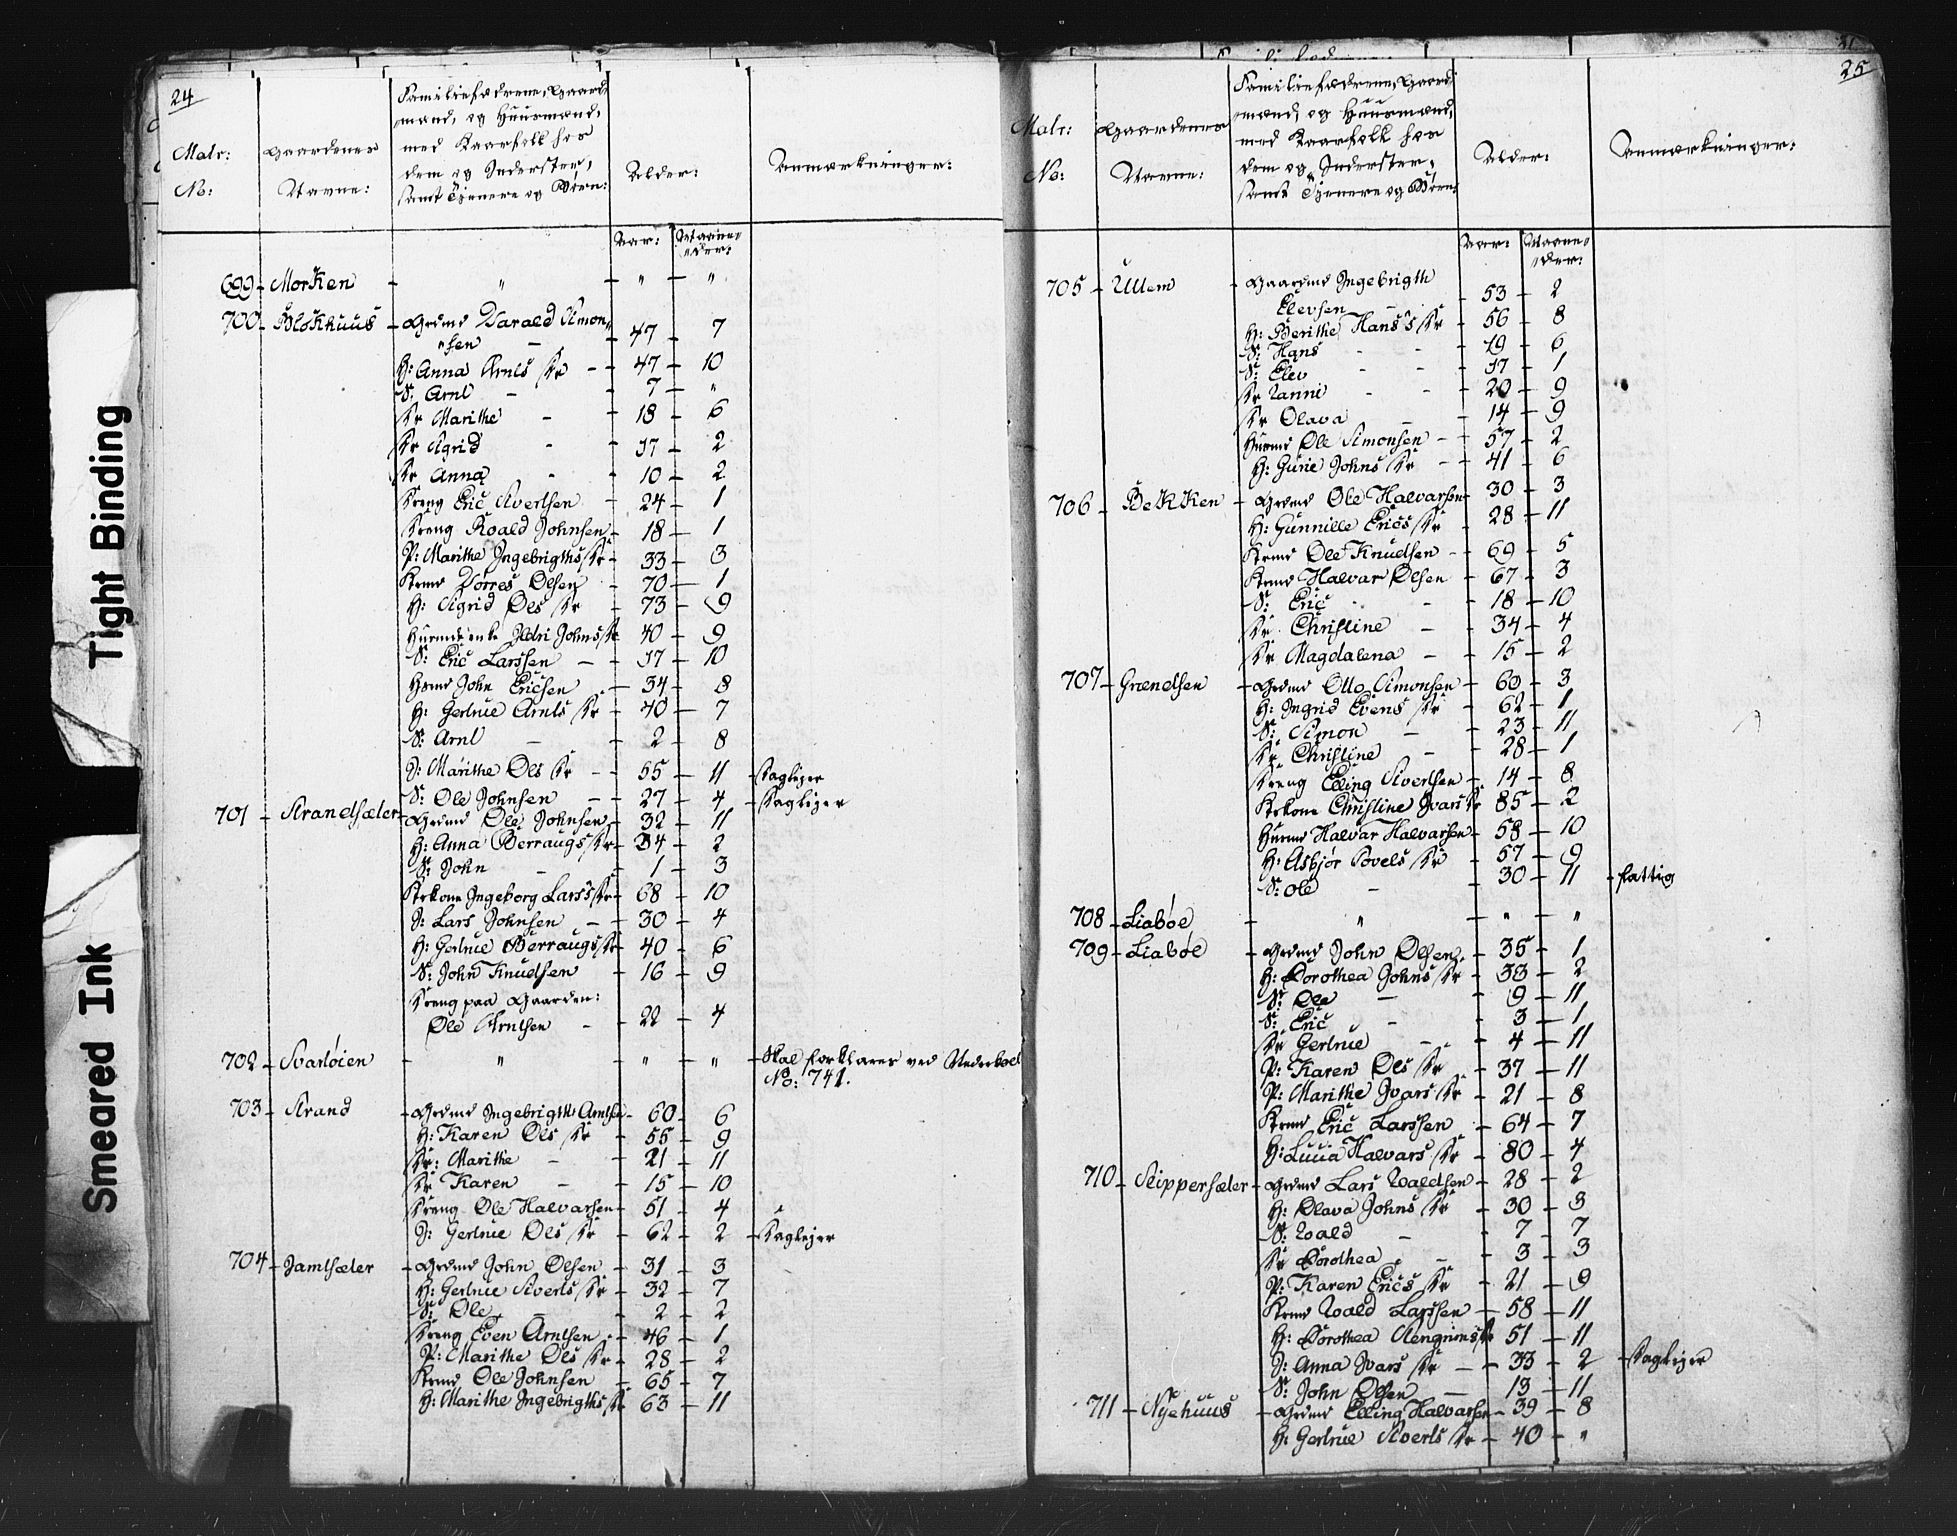 24
Matr: No:
Gaardenes Navne:
Familiefædrene, Gaard-
mænd, og Huusmænd,
med Kaarfolk hos
dem og Inderster,
samt Tjenere og Børn:
Alder:
Anmærkninger:
Aar: Maane-
der:
699 - Morken - " - " - "
700 - Blokhuus - Grdmd Harald Simon-
sen - 47 - 7
H: Anna Arnts Dr - 47 - 10
S: Arnt - 7 - "
Dr Marithe - 18 - 6
Dr Sigrid - 17 - 2
Dr Anna - 10 - 2
Dreng Eric Sivertsen - 24 - 1
Dreng Roald Johnsen - 18 - 1
P: Marithe Ingebrigths Dr - 33 - 3
Krmd Torres Olsen - 70 - 1
H: Sigrid Ols Dr - 73 - 9
Huusmds enke Ildri Johns Dr 40 - 9
S: Eric Larssen - 17 - 10
Hsmd John Ericsen - 34 - 8
H: Gertrue Arnts Dr - 40 - 7
S: Arnt - 2 - 8
I: Marithe Ols Dr - 55 - 11 - Daglejer
S: Ole Johnsen - 27 - 4 - Daglejer
701 - Strandsæter - Grdmd Ole Johnsen - 32 - 11
H: Anna Berraugs Dr - 34 - 2
S: John - 1 - 3
Krkone Ingeborg Lars's Dr - 68 - 10
I: Lars Johnsen - 30 - 4
H: Gertrue Berraugs Dr - 40 - 6
S: John Knudsen - 16 - 9
Dreng paa Gaarden:
Ole Arntsen - 22 - 4
702 - Svartøien - " - " - " - Skal forklares ved
No: 741.
703 - Strand - Grdmd Ingebrigth Arntsen - 60 - 6
H: Karen Ols Dr - 55 - 9
Dr: Marithe - 21 - 11
Dr Karen - 15 - 10
Dreng Ole Halvarsen - 51 - 4
I: Gertrue Ols Dr - 62 - 2 - Daglejer
704 - Jamtsæter - Grdmd John Olsen - 31 - 3
H: Gertrue Siverts Dr - 32 - 7
S: Ole - 2 - 2
Dreng Even Arntsen - 46 - 1
P: Marithe Ols Dr - 28 - 2
Krmd Ole Johnsen - 65 - 7
H: Marithe Ingebrigths Dr - 63 - 11
25
Matr: No:
Gaardenes Navne:
Familiefædrene, Gaard-
mænd, og Huusmænd,
med Kaarfolk hos
dem og Inderster,
samt Tjenere og Børn:
Alder:
Anmærkninger:
Aar: Maane-
der:
705 - Ullem - Gaardmd Ingebrigth
Elevsen - 53 - 2
H: Berithe Hans's Dr - 56 - 8
S: Hans - 19 - 6
S: Elev - 17 - 1
Dr - 20 - 9
Dr Olava - 14 - 9
Husmd Ole Simonsen - 57 - 2
H: Gurie Johns Dr - 41 - 6
706 - Bekken - Grdmd Ole Halvarsen - 30 - 3
H: Gunnille Erics Dr - 28 - 11
Krmd Ole Knudsen - 69 - 5
Krmd Halvar Olsen - 67 - 3
S: Eric - 18 - 10
Dr. Christine - 34 - 4
Dr Magdalena - 15 - 2
707 - Grændsen - Grdmd Otto Simonsen - 60 - 3
H: Ingrid Evens Dr - 62 - 1
S: Simon - 23 - 11
Dr Christine - 28 - 1
Dreng Elling Sivertsen - 14 - 8
Krkone Christine Ivars Dr 85 - 2
Husmd Halvar Halvarsen - 58 - 10
H: Asbjør Povels Dr - 57 - 9
S: Ole - 30 - 11 - fattig
708 - Liabøe - " - " - "
709 - Liabøe - Grdmd John Olsen - 35 - 1
H: Dorothea Johns Dr - 33 - 2
S: Ole - 9 - 11
S: Eric - 3 - 1
Dr Gertrue - 4 - 11
P: Karen Ols Dr - 37 - 11
P: Marithe Ivars Dr - 21 - 8
Krmd Eric Larssen - 64 - 7
H: Lucia Halvars Dr - 80 - 4
710 - Skippersæter - Grdmd Lars Roaldsen - 28 - 2
H: Olava Johns Dr - 30 - 3
S: Roald - 7 - 7
Dr Dorothea - 3 - 3
P: Karen Erics Dr - 21 - 9
Krmd Roald Larssen - 58 - 11
H: Dorothea Stengrims Dr 51 - 11
I: Anna Ivars Dr - 33 - 2 - Daglejer
S: John Olsen - 13 - 11
711 - Nyehuus - Grdmd Elling Halvarsen - 39 - 8
H: Gertrue Siverts Dr - 40 - "
Tight Binding
Smeared Ink